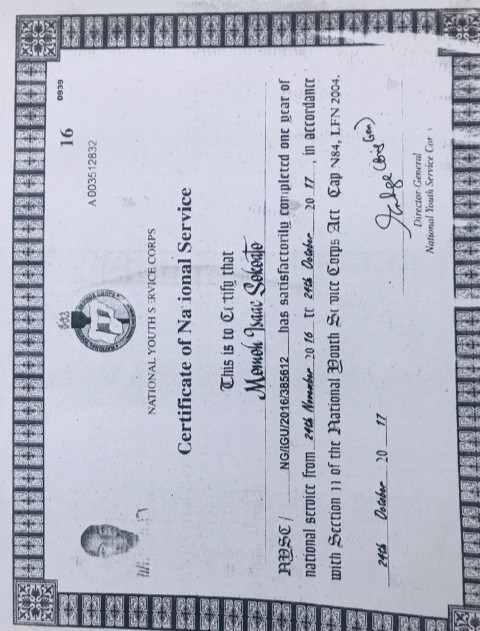 16
0939
A 003512832
NATIONAL YOUTH SERVICE CORPS
Certificate of National Service
This is to Certify that
Momoh Isaac
NYSC/ NG/IGU/2016/385612 has satisfactorily completed one year of
national service from 24th November 20 16 to 24th October 20 17, in accordance
with Section 11 of the National Youth Service Corps Act Cap N84, LFN 2004.
24th October 20 17
Director-General
National Youth Service Cor